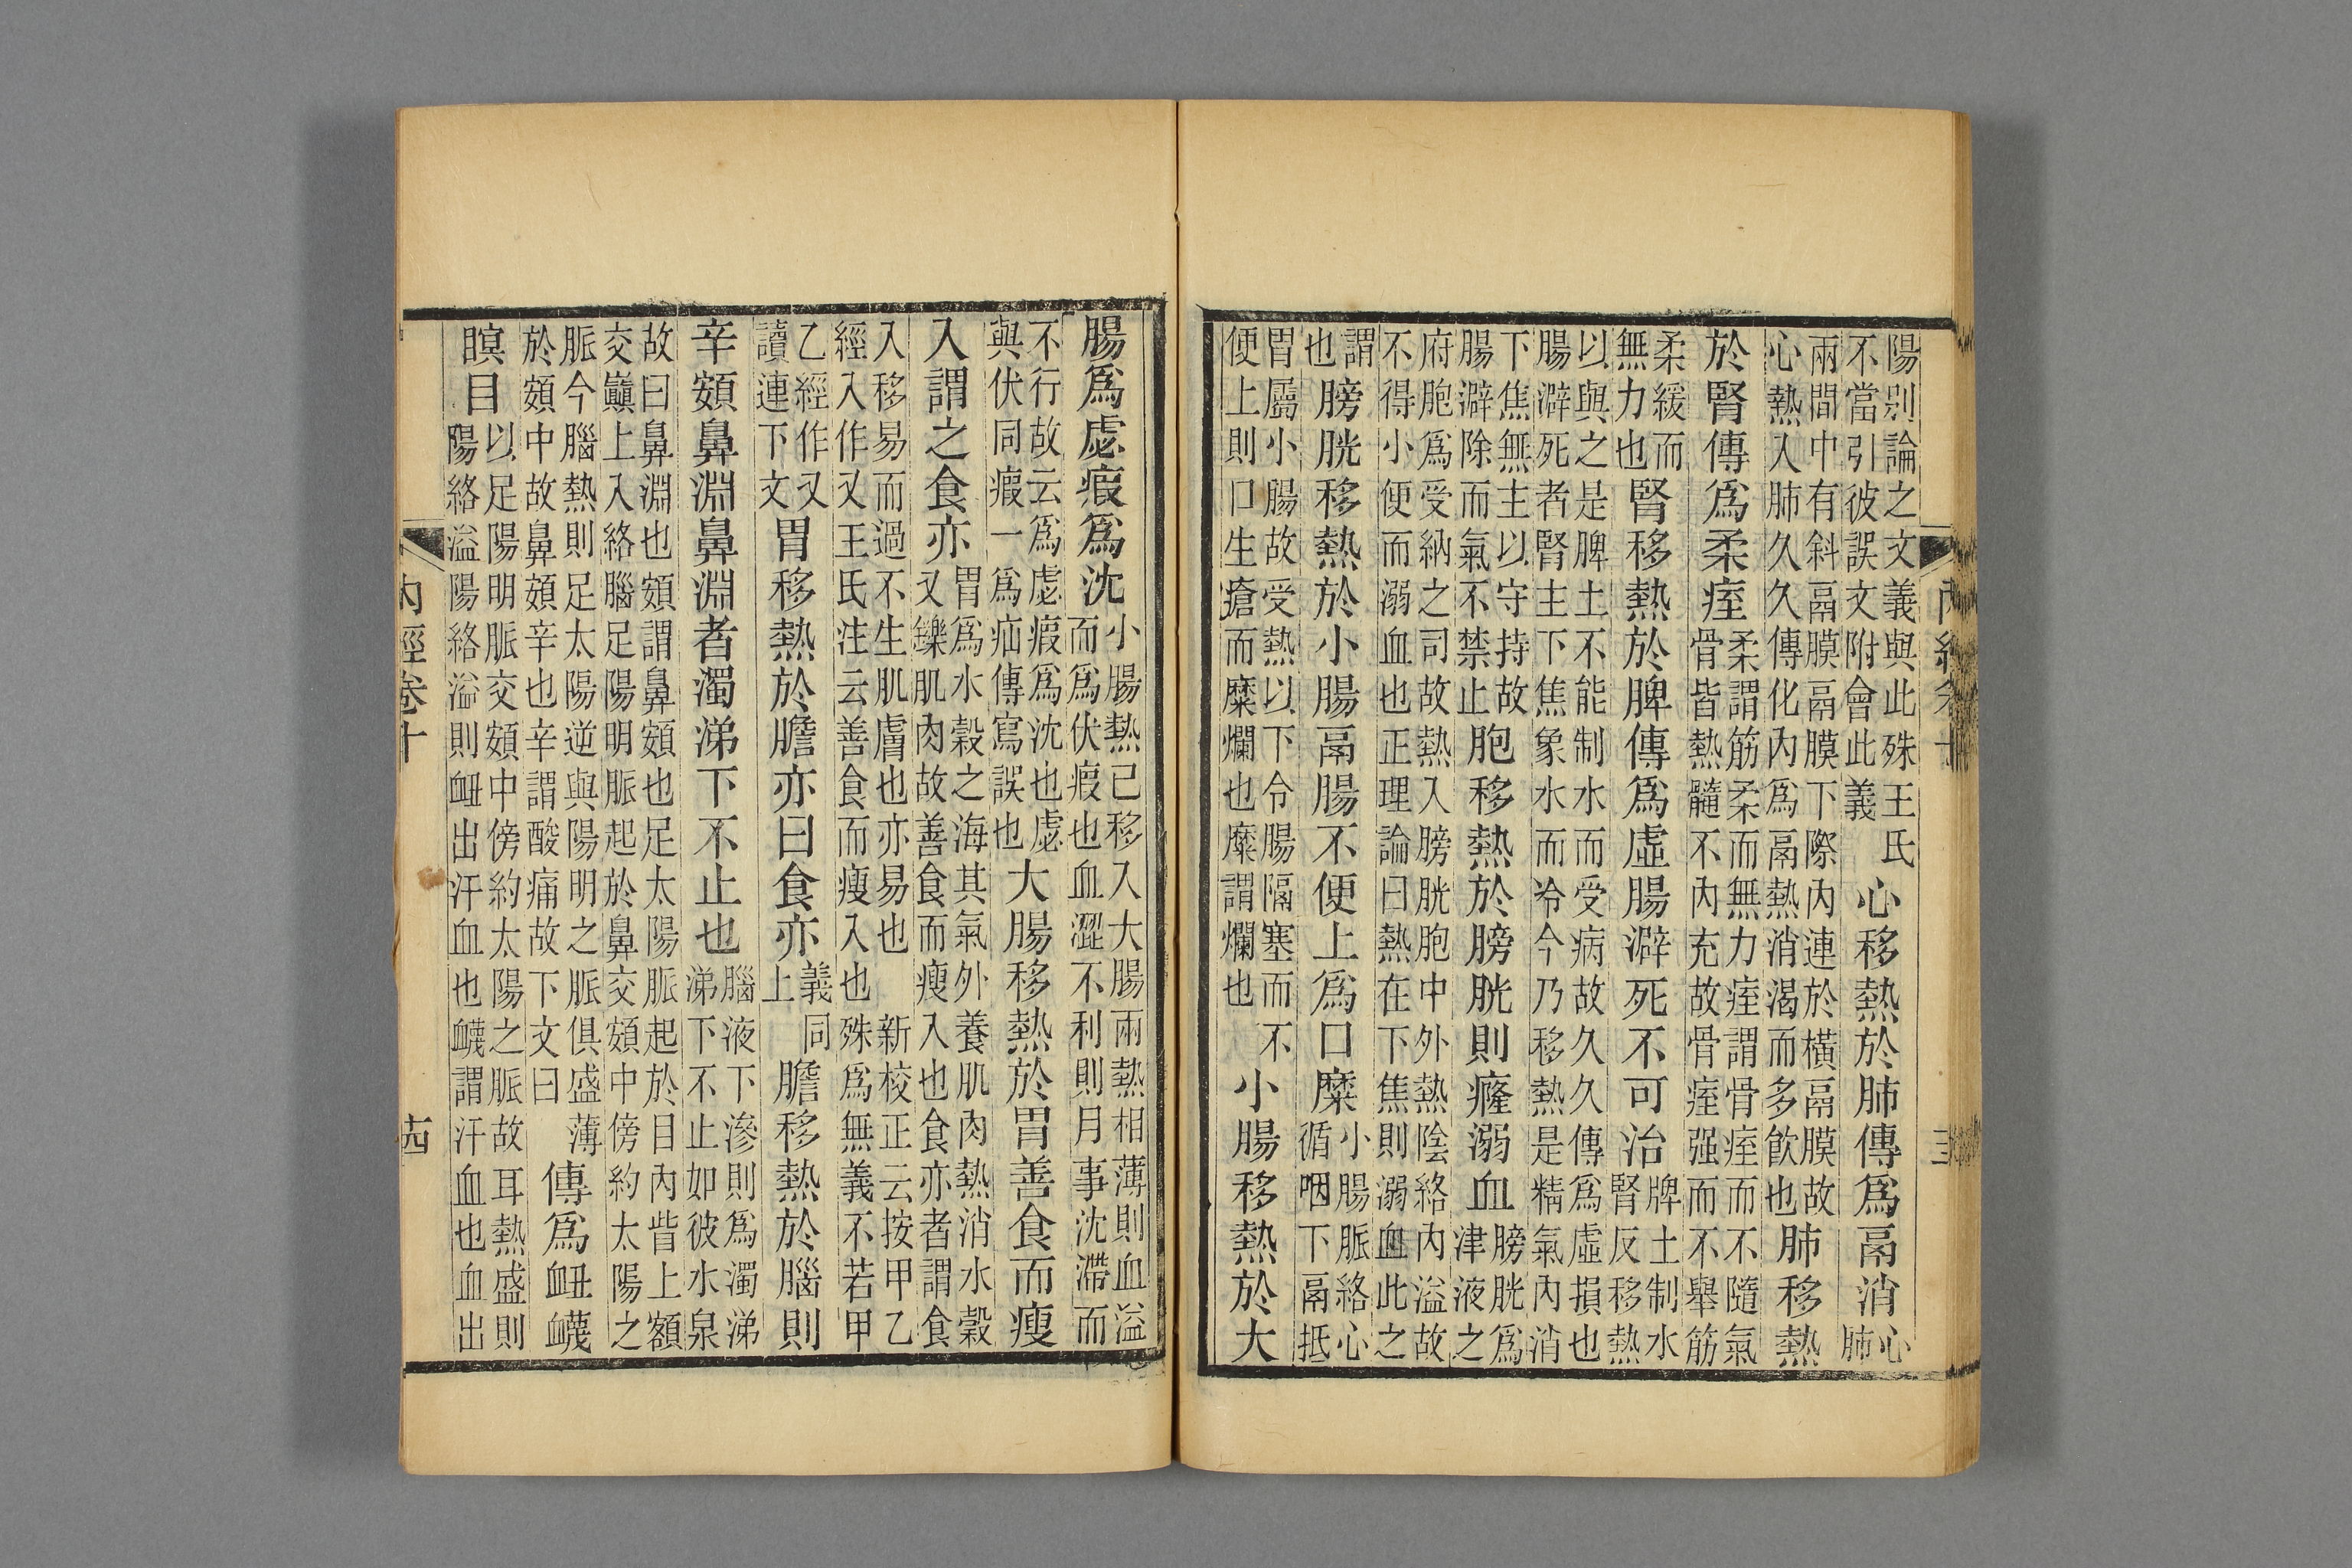 陽别論之文義與此殊王氏不當引彼誤文附會此義心移熱於肺傳爲鬲消心肺
兩間中有斜鬲膜鬲膜下際內連於橫鬲膜故心熱入肺久久傳化內爲鬲熱消渴而多飲也肺移熱
於腎傳爲柔痓柔謂筋柔而無力痓謂骨痓而不隨氣骨皆熱髓不內充故骨痓强而不舉筋
柔緩而無力也腎移熱於脾傳爲虛腸澼死不可治脾土制水腎反移熱
以與之是脾土不能制水而受病故久久傳爲虛損也腸澼死者腎主下焦象水而冷今乃移熱是精氣內消
下焦無主以守持故腸澼除而氣不禁止胞移熱於膀胱則癃溺血膀胱爲津液之
府胞爲受納之司故熱入膀胱胞中外熱陰絡內溢故不得小便而溺血也正理論曰熱在下焦則溺血此之
謂也膀胱移熱於小腸鬲腸不便上爲口糜小腸脈絡心循咽下鬲抵
胃屬小腸故受熱以下令腸隔塞而不便上則口生瘡而糜爛也糜謂爛也小腸移熱於大
腸爲虙瘕爲沈小腸熱已移入大腸兩熱相薄則血溢而爲伏瘕也血澀不利則月事沈滯而
不行故云爲虙瘕爲沈也虙與伏同瘕一爲疝傳寫誤也大腸移熱於胃善食而瘦
入謂之食亦胃爲水穀之海其氣外養肌肉熱消水穀又鑠肌肉故善食而瘦入也食亦者謂食
入移易而過不生肌膚也亦易也 新校正云按甲乙經入作又王氏注云善食而瘦入也殊爲無義不若甲
乙經作又讀連下文胃移熱於膽亦曰食亦義同上膽移熱於腦則
辛頞鼻淵鼻淵者濁涕下不止也腦液下滲則爲濁涕涕下不止如彼水泉
故曰鼻淵也頞謂鼻頞也足太陽脈起於目內眥上額交巔上入絡腦足陽明脈起於鼻交頞中傍約太陽之
脈今腦熱則足太陽逆與陽明之脈俱盛薄於頞中故鼻頞辛也辛謂酸痛故下文曰傳爲衄衊
瞑目以足陽明脈交頞中傍約太陽之脈故耳熱盛則陽絡溢陽絡溢則衄出汗血也衊謂汗血也血出
內經卷十
十四